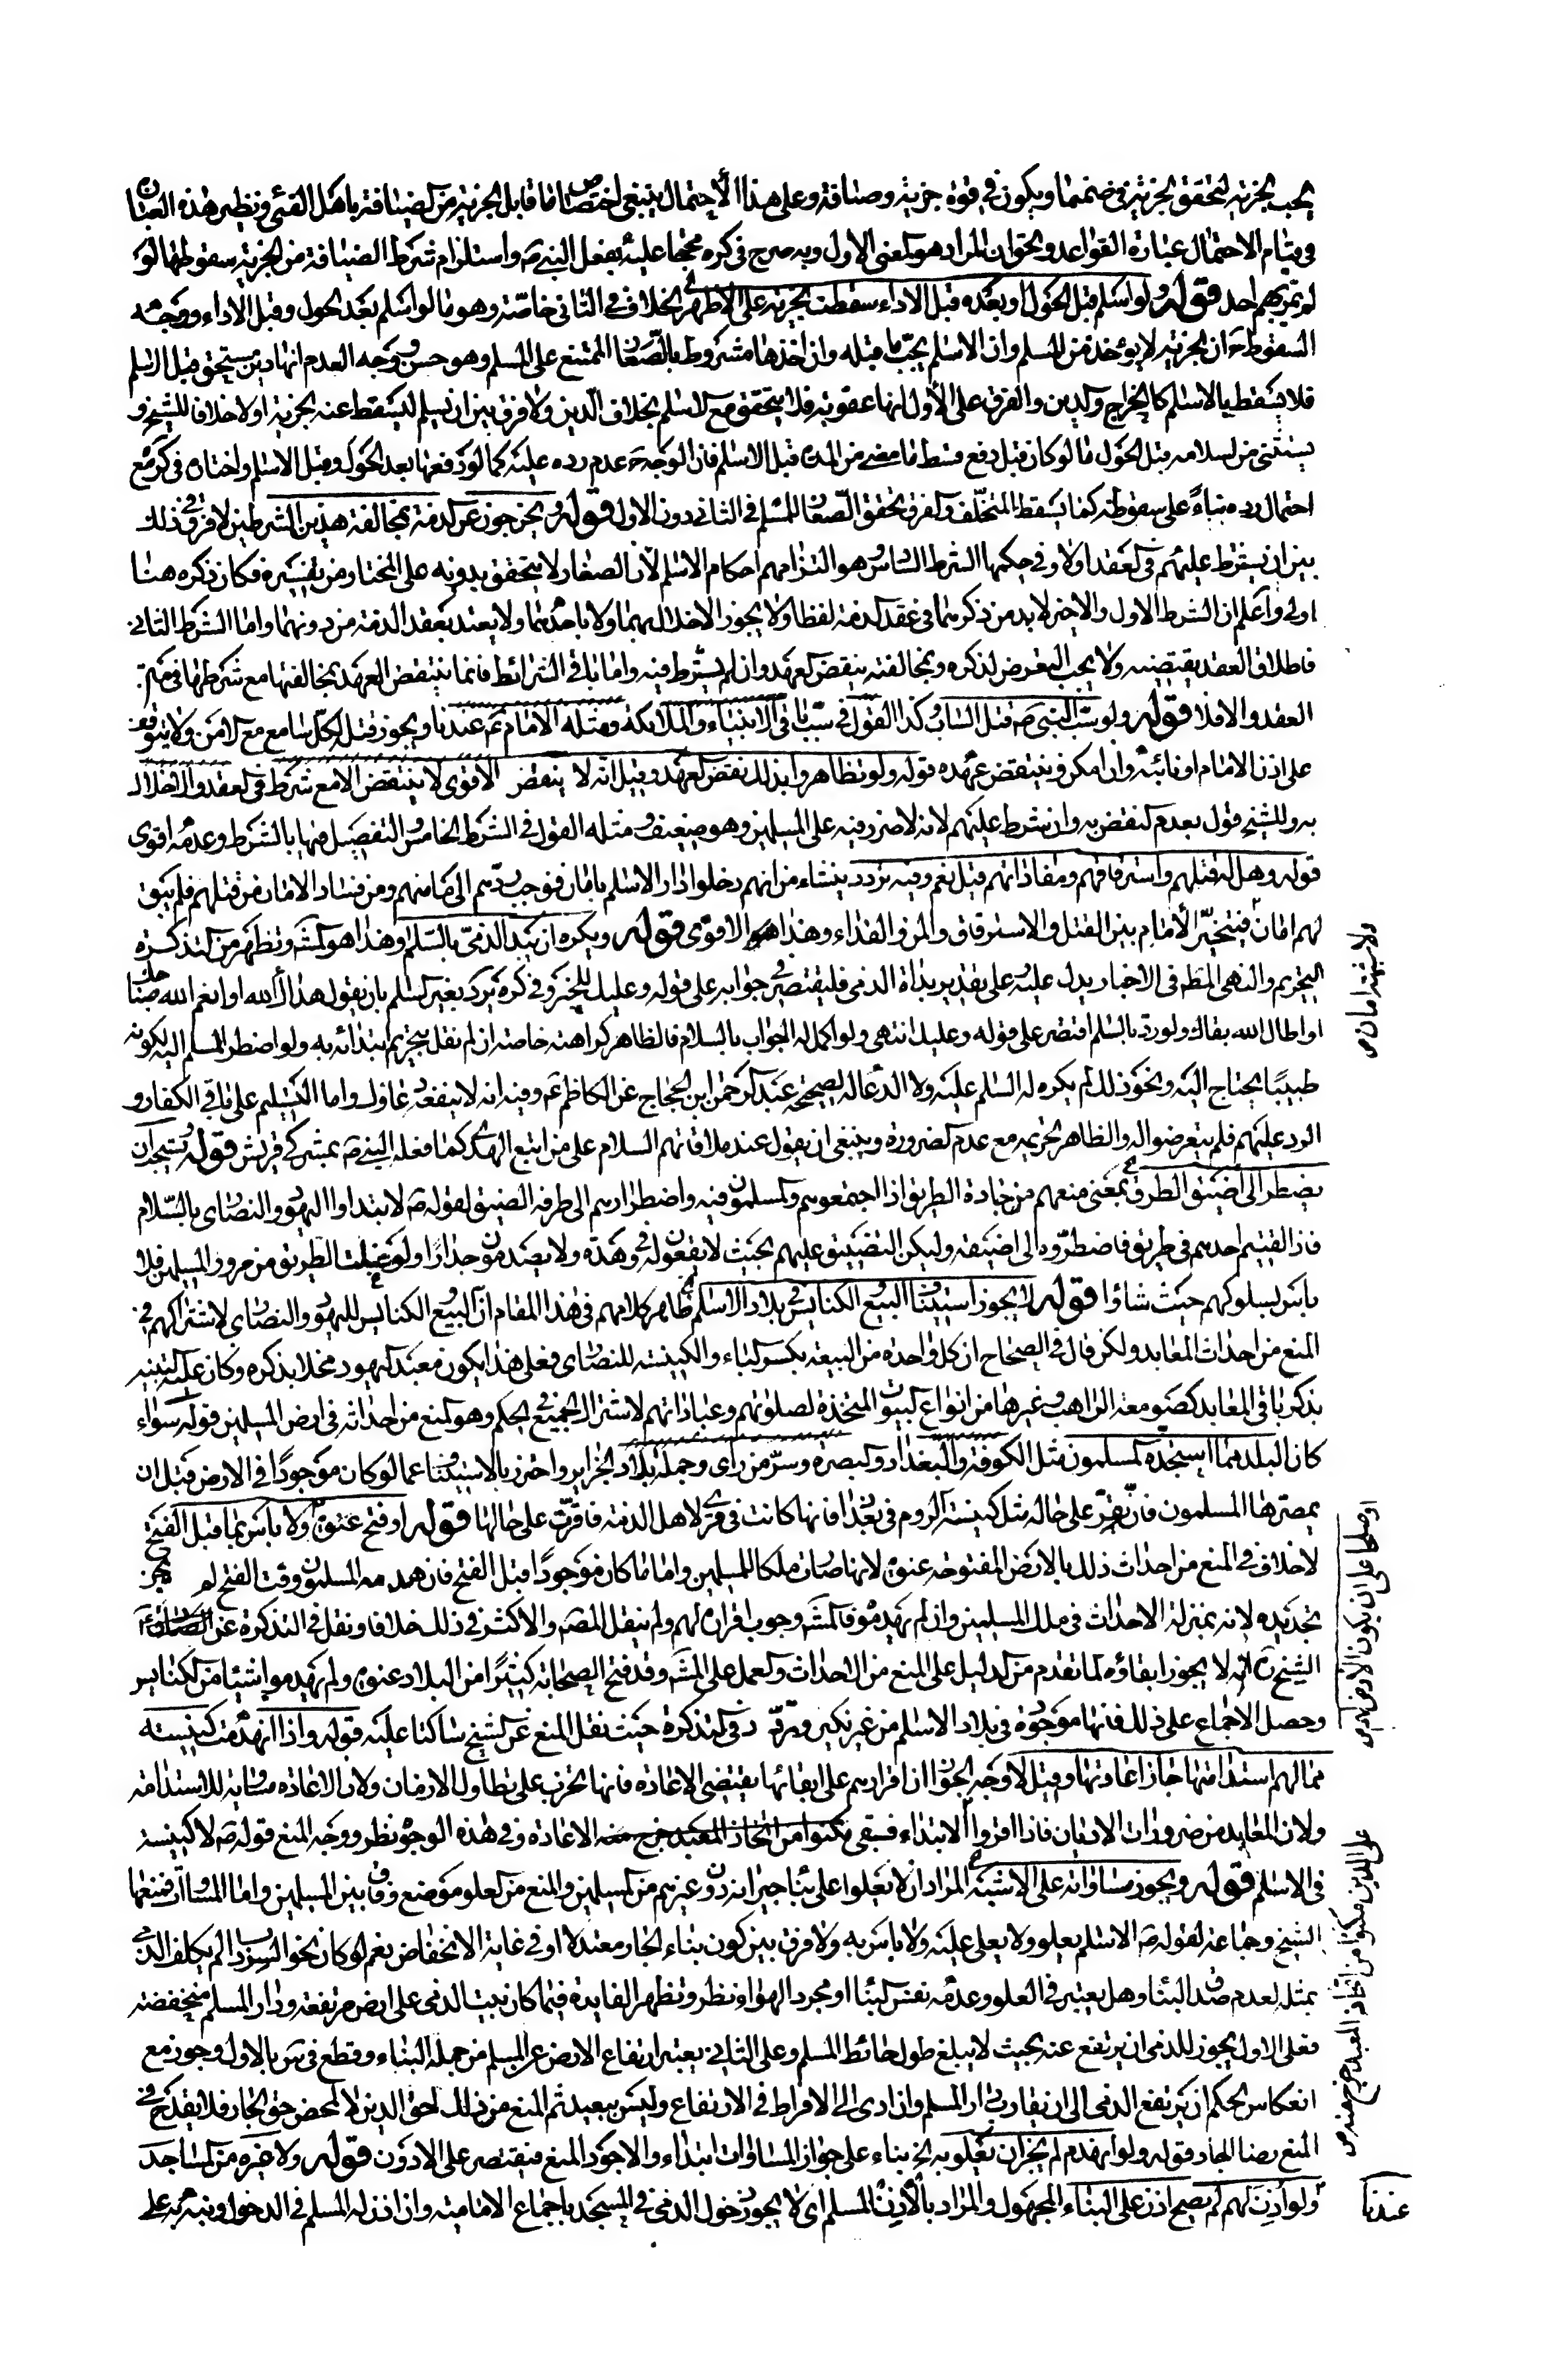 يجب الجزية لتحقق الجزية في ضمنها ويكون في قوة جزية وضيافة وعلى هذا الاحتمال ينبغي اختصاص ما قابل الجزية من الضيافة باهل الفئ ونظير هذه العبارة
في قيام الاحتمال عبارة القواعد والحق ان المراد هو المعنى الاول وبه صرح في كره محتجا عليه بفعل النبي ص واستلزام شرط الضيافة من الجزية سقوطها لو
لم يمر بهم احد قوله ولو اسلم قبل الحول او بعده قبل الاداء سقطت الجزية على الاظهر الخلاف في الثاني خاصة وهو ما لو اسلم بعد الحول وقبل الاداء ووجه
السقوط ح ان الجزية لا يؤخذ من المسلم وان الاسلم يجب ما قبله وان اخذها مشروط بالصغار الممتنع على المسلم وهو حسن ووجه العدم انها دين يستحق قبل الاسلم
فلا يسقط بالاسلم كالخراج والدين والفرق على الاول انها عقوبة فلا يتحقق مع الاسلم بخلاف الدين ولا فرق بين ان يسلم ليسقط عنه الجزية او لا خلافا للشيخ و
يستثنى من اسلامه قبل الحول ما لو كان قبل دفع قسط ما مضى من المدة قبل الاسلم فان الوجه ح عدم رده عليه كما لو دفعها بعد الحول وقبل الاسلم واختاره في كره مع
احتمال رده بناء على سقوطه كما يسقط المتخلف والفرق تحقق الصغار للمسلم في الثاني دون الاول قوله ويخرجون عن الذمة بمخالفة هذين الشرطين لا فرق في ذلك
بين ان يشترط عليهم في العقد او لا وفي حكمها الشرط السادس وهو التزامهم احكام الاسلم لان الصغار لا يتحقق بدونه على المختار من تفسيره فكان ذكره هنا
اولى واعلم ان الشرط الاول والاخير لا بد من ذكرهما في عقد الذمة لفظا ولا يجوز الاخلال بهما ولا باحدهما ولا يعتد بعقد الذمة من دونهما واما الشرط الثاني
فاطلاق العقد يقتضيه ولا يجب التعرض لذكره وبمخالفته ينقض العهد وان لم يشترط فيه واما باقي الشرائط فانما ينتقض العهد بمخالفتها مع شرطها في متن
العقد والا فلا قوله ولو سب النبي ص قتل الساب وكذا القول في سب باقي الانبياء والملائكة ومثله الامام ع عندنا ويجوز قتل لكل سامع مع الامن ولا يتوقف
على اذن الامام او نائبه وان امكن وينتقض عهده قوله ولو تظاهروا بذلك نقض العهد وقيل انه لا ينقض الاقوى لا ينتقض الا مع شرط في العقد والاخلال
به وللشيخ قول بعدم النقض به وان شرط عليهم لانه لا ضرر فيه على المسلمين وهو ضعيف ومثله القول في الشرط الخامس والتفصيل فيها بالشرط وعدمه اقوى
قوله وهل له قتلهم واسترقاقهم ومفاداتهم قيل نعم وفيه تردد ينشاء من انهم دخلوا دار الاسلم بامان فوجب ردهم الى مامنهم ومن فساد الامان من قبلهم فلم يبق
لهم امان فيتخير الامام بين القتل والاسترقاق والمن والفداء وهذا هو الاقوى قوله ويكره ان يبدا الذمي بالسلم وهذا هو المشه وتظهر من التذكرة
التحريم والنهي المطم في الاخبار يدل عليه وعلى تقدير بداة الذمي فليقتصر في جوابه على قوله وعليك للخبر وفي كره يرد بغير السلم بان يقول هداك الله او انعم الله صباحك
او اطال الله بقاك ولو رد بالسلم اقتصر على قوله وعليك انتهى ولو اكمل له الجواب بالسلام فالظاهر كراهته خاصة ان لم نقل بتحريم ابتدائه به ولو اضطر المسلم اليه لكونه
طبيبا يحتاج اليه ونحو ذلك لم يكره له السلم عليه ولا الدعا له لصحيحة عبد الرحمن ابن الحجاج عن الكاظم ع وفيه انه لا ينفعه دعاؤك واما التسليم على باقي الكفار و
الرد عليهم فلم يتعرضوا له والظاهر تحريمه مع عدم الضرورة وينبغي ان يقول عند ملاقاتهم السلام على من اتبع الهدى كما فعله النبي ص بمشركي قريش قوله ويستحب ان
يضطر الى اضيق الطرق بمعنى منعهم من جادة الطريق اذا اجتمعوا هم والمسلمون فيه واضطرارهم الى طرفه الضيق لقوله ص لا تبتداوا اليهود والنصارى بالسلام
فاذا لقيتم احدهم في طريق فاضطروه الى اضيقه وليكن التضييق عليهم بحيث لا يقعون في وهدة ولا يصدمون جدارا ولو خلت الطريق من مرور المسلمين فلا
باس بسلوكهم حيث شاؤا قوله لا يجوز استيناف البيع والكنايس في بلاد الاسلم ظاهر كلامهم في هذا المقام ان البيع والكنايس لليهود والنصارى لاشتراكهم في
المنع من احداث المعابد ولكن قال في الصحاح ان كل واحدة من البيعة بكسر الباء والكنيسة للنصارى فعلى هذا يكون معبد اليهود مخلا بذكره وكان عليه تنبيه
بذكر باقي المعابد كصومعة الراهب وغيرها من انواع البيوت المتخذة لصلوتهم وعباداتهم لاشتراك الجميع في الحكم وهو المنع من احداثه في ارض المسلمين قوله سواء
كان البلد مما استجده المسلمون مثل الكوفة والبغداد والبصرة وسر من راى وجملة بلاد الجزاير واحترز بالاستيناف عما لو كان موجودا في الارض قبل ان
يمصرها المسلمون فانه يقر على حاله مثل كنيسة الروم في بغداد فانها كانت في قرى لاهل الذمة فاقرت على حالها قوله او فتح عنوة ولا باس بما قبل الفتح
لا خلاف في المنع من احداث ذلك بالارض المفتوحة عنوة لانها صارت ملكا للمسلمين واما ما كان موجودا قبل الفتح فان هدمه المسلمون وقت الفتح لم يجز
تجديده لانه بمنزلة الاحداث في ملك المسلمين وان لم يهدموه فالمشه وجوب اقراره لهم ولم ينقل المص والاكثر في ذلك خلافا ونقل في التذكرة عن
الشيخ ره انه لا يجوز ابقاؤه لما تقدم من الدليل على المنع من الاحداث والعمل على المشه وقد فتح الصحابة كثيرا من البلاد عنوة ولم يهدموا شيئا من الكنايس
وحصل الاجماع على ذلك فانها موجودة في بلاد الاسلم من غير نكير وفي التذكرة حيث نقل المنع عن الشيخ ساكتا عليه قوله واذا انهدمت كنيسة
مما لهم استدامتها جاز اعادتها وقيل لا وجه الجواز ان اقرارهم على ابقائها يقتضي الاعادة فانها تخرب على تطاول الازمان ولان الاعادة مشابة للاستدامة
ولان المعابد من ضرورات الاديان فاذا اقروا الابتداء فسبقى مكنوا من اتخاذ المعبد خرج منه الاعادة وفي هذه الوجوه نظر ووجه المنع قوله ص لا كنيسة
في الاسلم قوله ويجوز مساواته على الاشبه المراد ان لا يعلوا على بناء جيرانه دون غيرهم من المسلمين والمنع من العلو موضع وفاق بين المسلمين واما المساواة فمنعها
الشيخ وجماعة لقوله ص الاسلم يعلو ولا يعلى عليه ولا باس به ولا فرق بين كون بناء الجار معتدلا او في غاية الانخفاض نعم لو كان نحو السرداب لم يكلف الذمي
بمثله لعدم صدق البناء وهل يعتبر في العلو وعدمه نفس البناء او مجرد الهواء نظر وتظهر الفايدة فيما كان بيت الذمي على ارض مرتفعة ودار المسلم منخفضة
فعلى الاول يجوز للذمي ان يرتفع عنه بحيث لا يبلغ طول حائط المسلم وعلى الثاني يعتبر ارتفاع الارض عن المسلم من جملة البناء وقطع في س بالاول وجوز مع
انعكاس الحكم ان يرتفع الذمي الى ان يقارب دار المسلم وان ادى الى الافراط في الارتفاع وليس ببعيد ثم المنع من ذلك لحق الدين لا لمحض حق الجار فلا يقدح في
المنع رضا الجار قوله ولو انهدم لم يجز ان يعلو به الخ بناء على جواز المساوات ابتداء والاجود المنع فيقتصر على الادون قوله ولا غيره من المساجد
ولو اذن لهم لم يصح اذن على البناء المجهول والمراد بالاذن المسلم اى لا يجوز دخول الذمي في المسجد باجماع الامامية وان اذن له المسلم في الدخول ونبه به على
ولا شبهة امان ص
او صلحا على ان يكون الارض لهم ص
على الدين مكنوا من اتخاذ المعبد خرج منه ص
عندنا